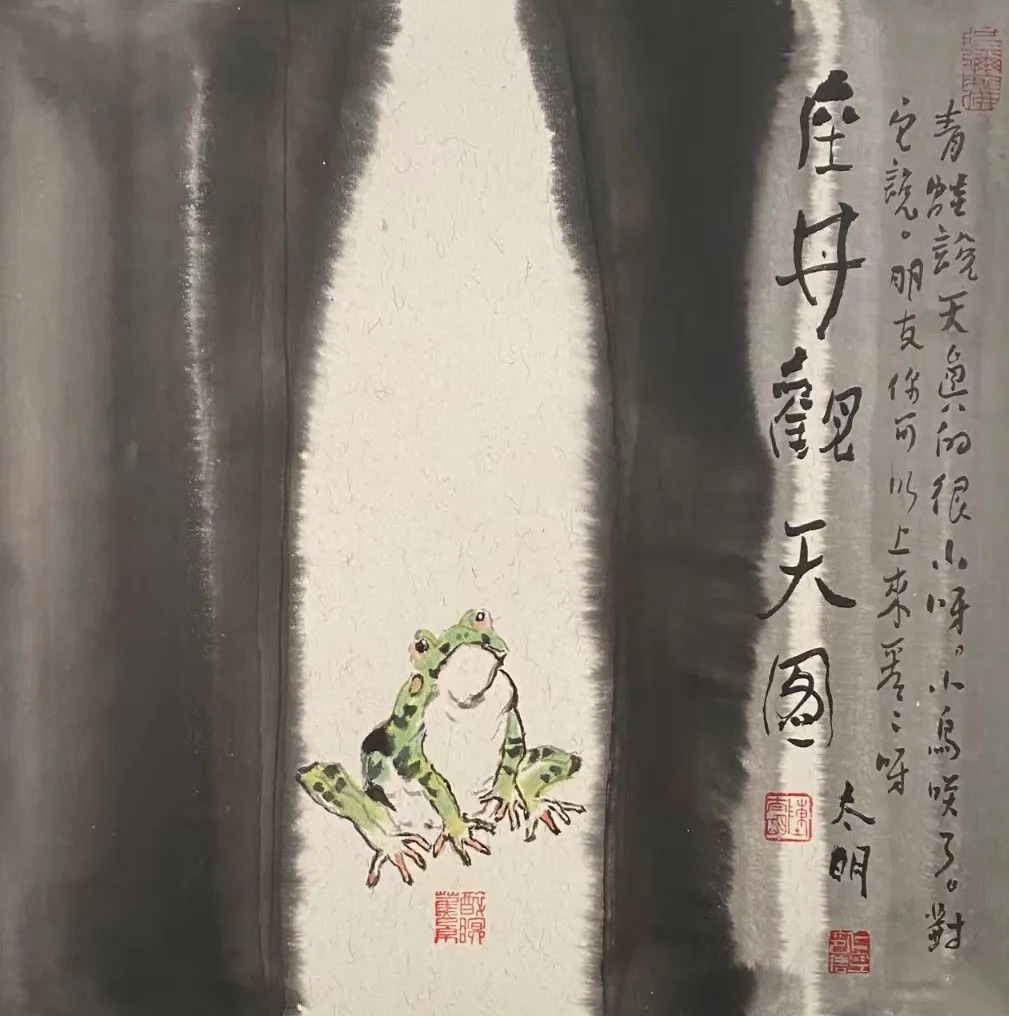 座井觀天圖
青蛙說天真的很小呀。小鳥咲了。對
它說。朋友你可以上來看〻呀
太明